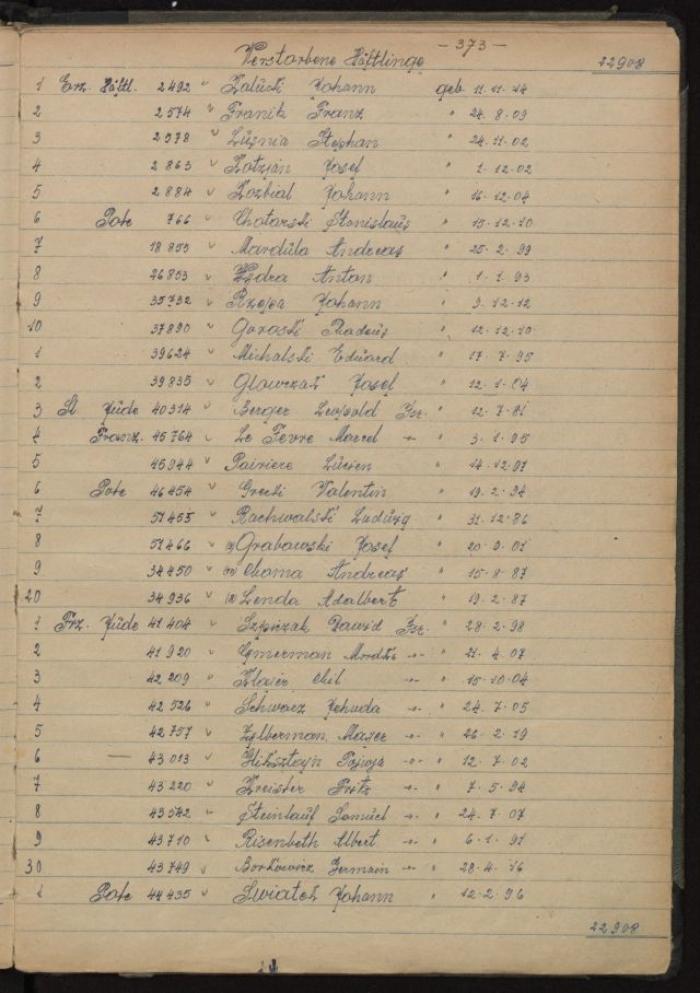 - 373 -
Verstorbene Häftlinge 22908
1 Erz. Häftl. 2492 v Zaluski Johann geb. 11.11.14
2 2574 v Franik Franz " 24.8.09
3 2578 v Lusnia Stephan " 24.11.02
4 2863 v Kotzjan Josef " 1.12.02
5 2884 v Kozbial Johann " 16.12.04
6 Pole 766 v Chatarski Stanislaus " 15.12.10
7 18855 v Mardula Andreas " 25.2.99
8 26853 v Wydra Anton " 1.1.93
9 35732 v Rzepa Johann " 9.12.12
10 37890 v Goroski Thadeus " 12.12.10
1 39624 v Michalski Eduard " 17.7.95
2 39835 v Glowczak Josef " 12.1.04
3 Sl. Jude 40314 v Berger Leopold Isr. " 12.7.81
4 Franz. 45764 v Le Fevre Marcel " 3.1.95
5 45944 v Pairiere Lucien " 14.12.97
6 Pole 46454 v Grecki Valentin " 19.2.94
7 51455 v Rachwalski Ludwig " 31.12.86
8 51466 v Grabowski Josef " 20.9.01
9 34450 v Chama Andreas " 15.8.87
20 34936 v Lenda Adalbert " 19.2.87
1 Frz. Jude 41404 v Szpiczak Dawid Isr. " 28.2.98
2 41920 v Cymerman Mordka " " 21.4.07
3 42209 Klajer Chil " " 15.10.04
4 42526 v Schwarz Jehuda " " 24.7.05
5 42757 v Zylberman Majer " " 26.2.19
6 — 43013 v Miksztajn " " 12.7.02
7 43220 v Kreister Fritz " " 7.5.94
8 43542 v Steinlauf Samuel " " 24.7.07
9 43710 v Risenbeth Albert " " 6.1.91
30 43749 v Borkowicz Germain " " 28.4.16
1 Pole 44435 v Swiatek Johann " 12.2.96
22908